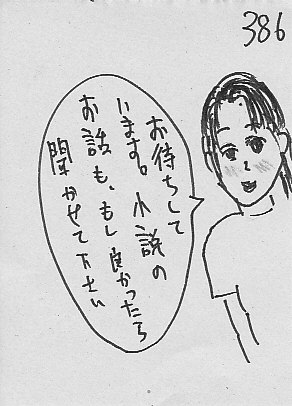 386
お待ちして
います。小説の
お話も、もし良かったら
聞かせて下さい